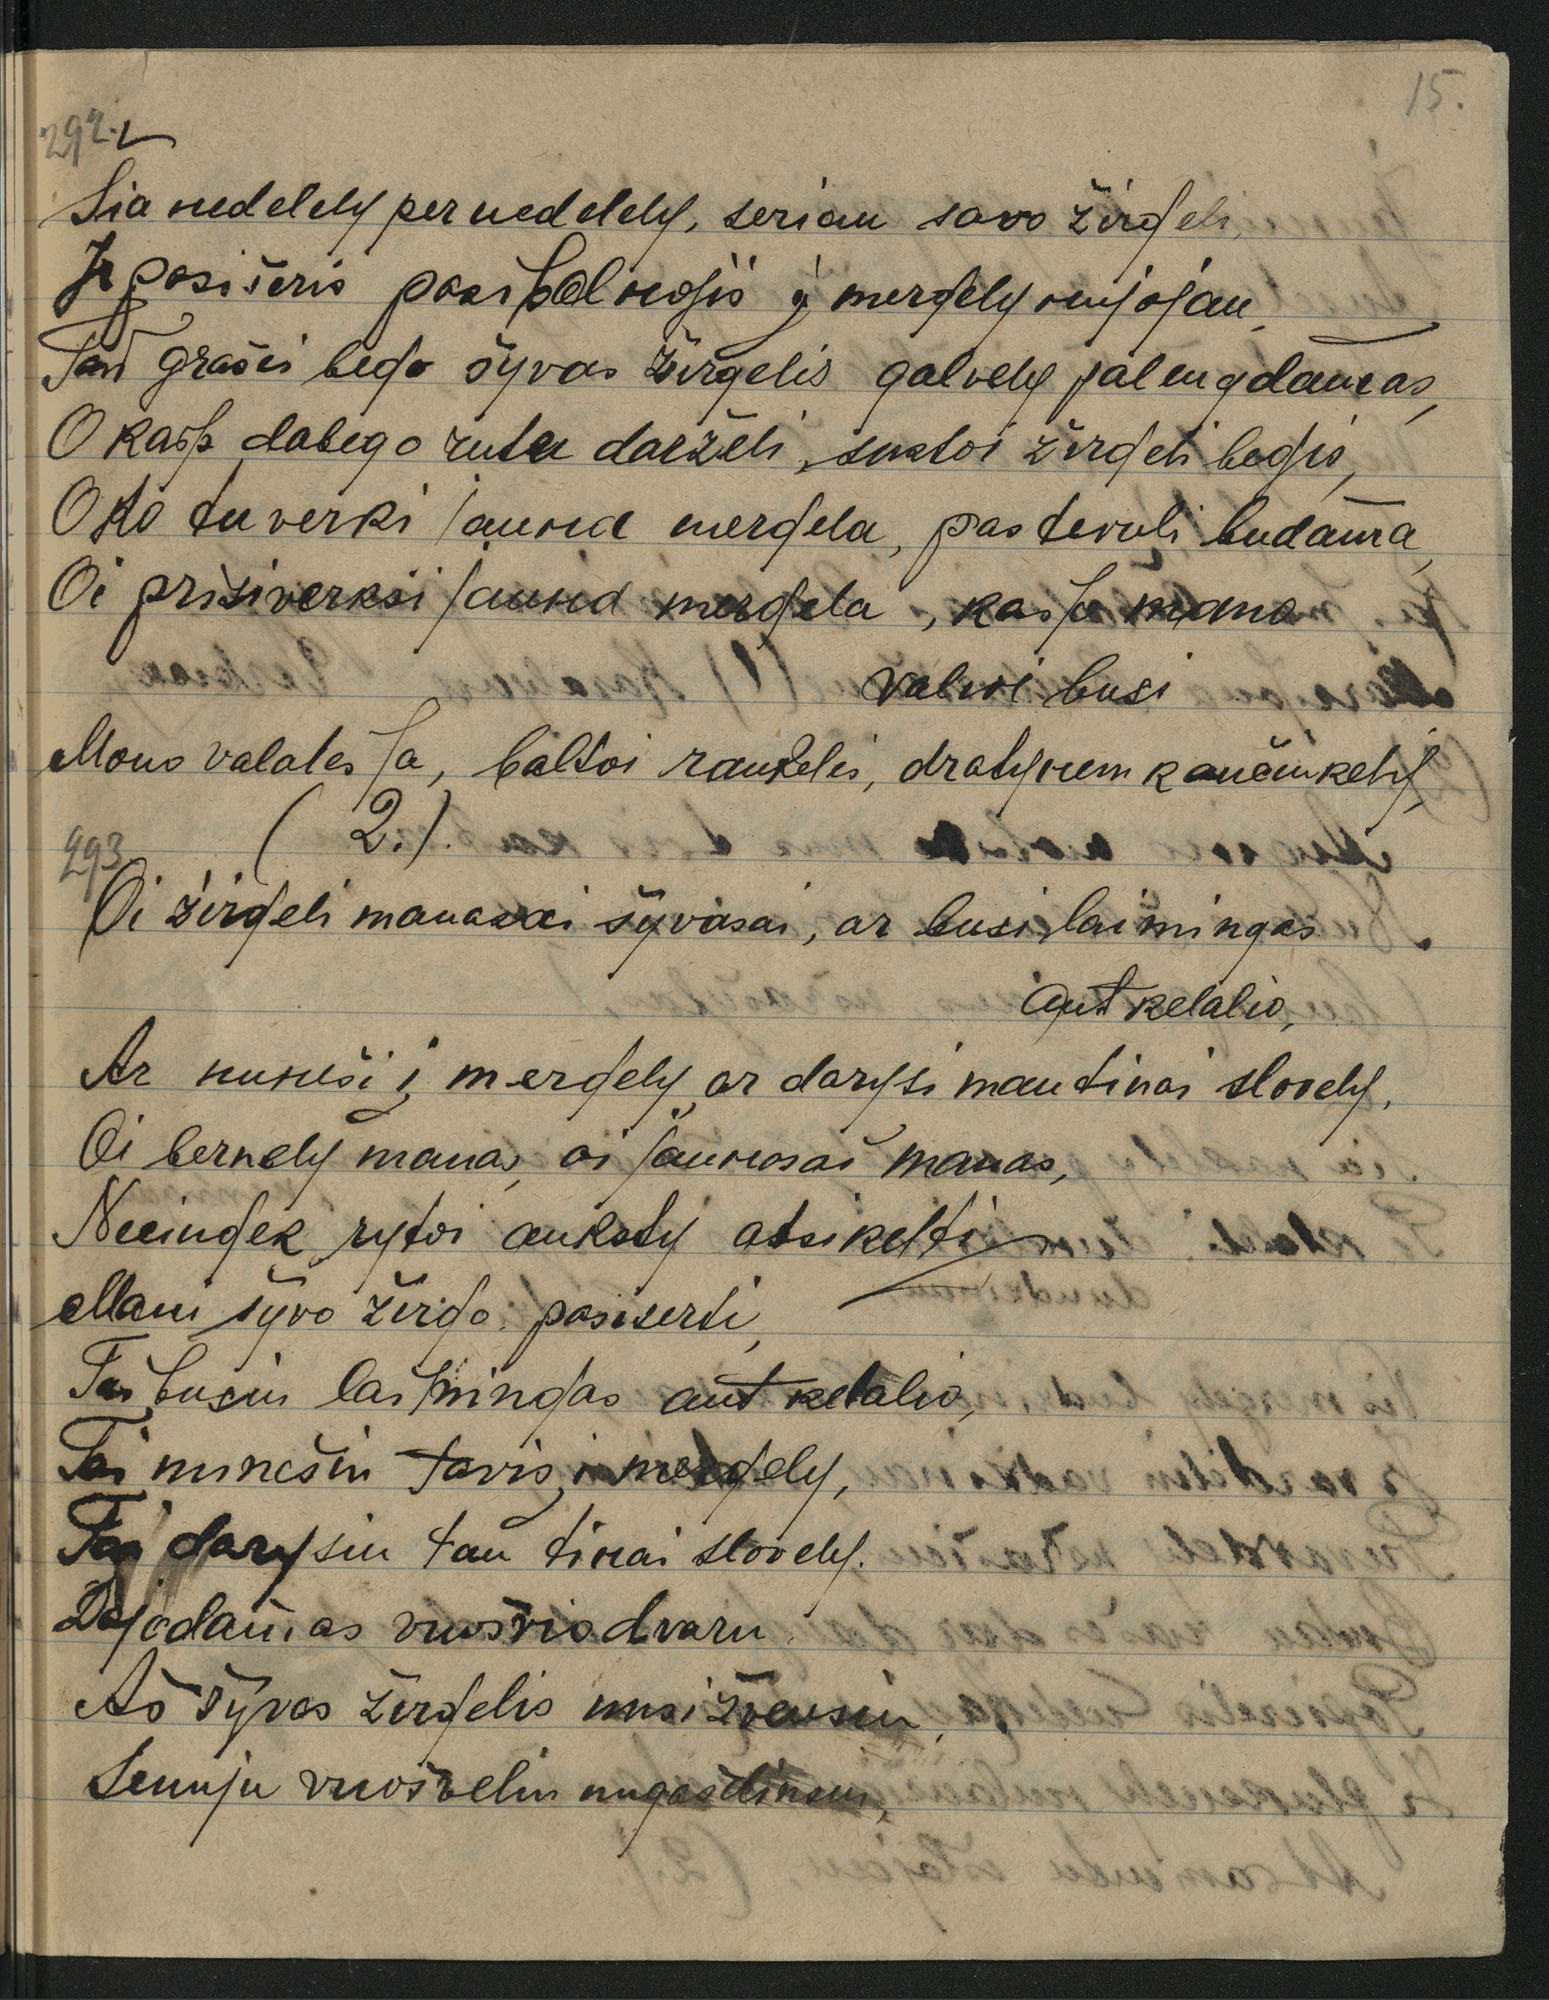 15.
292.
Sia nedelely per nedelely, seriau savo žirgeli,
Ir pasišeris pasibalnojis į mergely nujojau,
Tai grašei bego šyvas žirgelis galvely palengdamas,
O kaip dabego rutu darželi, sustoi žirgeli begis,
O ko tu verki jauna mergela, pas tevuli budama,
Oi prisiverksi jauna mergela, kaip mano
valnoi busi
Mano valales ja, baltoi rankelis, dratynem kančiukely,
(2.).
293
Oi žirgeli manasai šyvasai, ar busi laimingas
ant kelalio,
Ar nuneši į mergely ar darysi man tinai slovely,
Oi bernely manas, oi jaunasai manas,
Netingek rytoi auksty atsikelti
Mani šyvo žirgo pasiserti,
Tai busiu laimingas ant kelalio,
Tai nunešiu tavis į mergely,
Tai darysiu tau tinai slovely.
Dajodamas uošvio dvaru
Aš šyvas žirgelis nusižvensiu,
Senuju uošveliu nugasdinsiu,